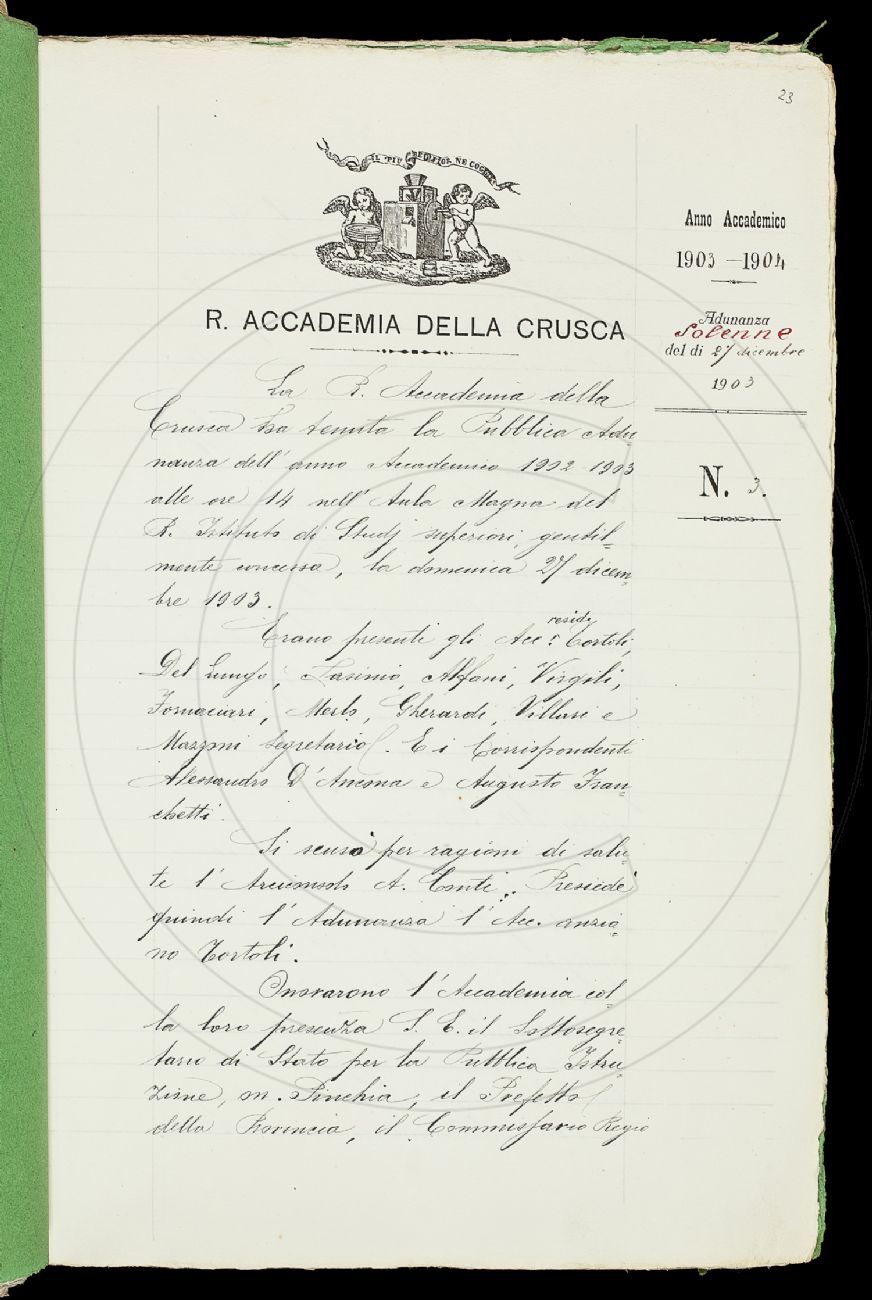 23
IL PIÙ BEL FIOR NE COGLIE
Anno Accademico
1903-1904
Adunanza
Solenne
del dì 27 dicembre
1903
N. 3.
R. ACCADEMIA DELLA CRUSCA
La R. Accademia della
Crusca ha tenuta la Pubblica Adu=
nanza dell'anno Accademico 1902-1903
alle ore 14 nell'Aula Magna del
R. Istituto di Studj superiori, gentil=
mente concessa, la domenica 27 dicem=
bre 1903.
Erano presenti gli Acc.i residi Tortoli,
Del Lungo, Lasinio, Alfani, Virgili,
Fornaciari, Merlo, Gherardi, Villari e
Mazzoni segretario. E i Corrispondenti
Alessandro D'Ancona e Augusto Fran=
chetti.
Si scusò per ragioni di salu=
te l'Arciconsolo A. Conti. Presiede
quindi l'Adunanza l'Acc. anzia=
no Tortoli.
Onorarono l'Accademia col=
la loro presenza S. E. il Sottosegre=
tario di Stato per la Pubblica Istru=
zione, on. Pinchia, il Prefetto
della Provincia, il Commissario Regio